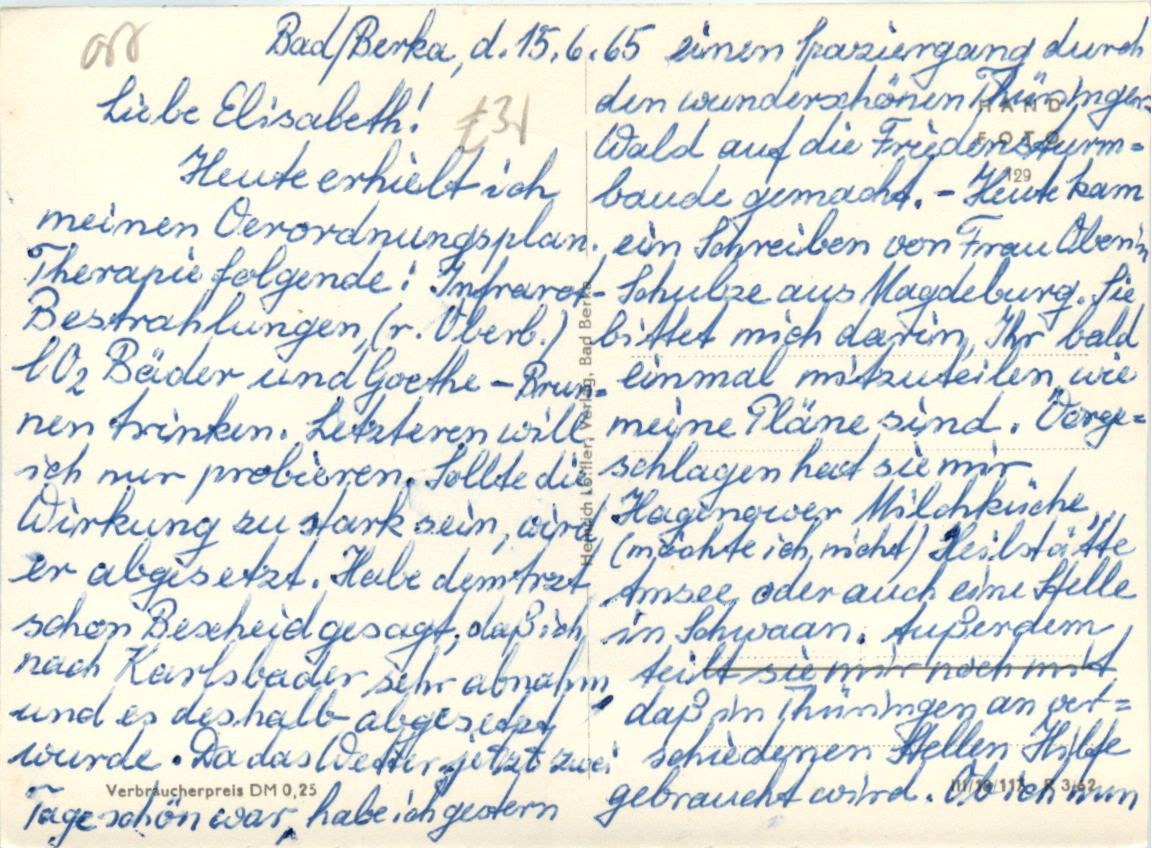 Bad/Berka, d. 15.6.65
Liebe Elisabeth!
£3/
Heute erhielt ich
meinen Verordnungsplan.
Therapie folgende: Infrarot-
Bestrahlungen, (r. Oberb.)
CO2 Bäder und Goethe - Brun=
nen trinken. Letzteren will
ich nur probieren. Sollte die
Wirkung zu stark sein, wird
er abgesetzt. Habe dem Arzt
schon Bescheid gesagt, daß ich
nach Karlsbader sehr abnahm
und es deshalb abgesetzt
wurde. Da das Wetter jetzt zwei
Tage schön war, habe ich gestern
einen Spaziergang durch
den wunderschönen Thüringer
Wald auf die Friedensturm=
baude gemacht. - Heute kam
ein Schreiben von Frau Oberin
Schulze aus Magdeburg. Sie
bittet mich darin, Ihr bald
einmal mitzuteilen, wie
meine Pläne sind. Vorge=
schlagen hat sie mir
Hagenower Milchküche,
(möchte ich nicht) Heilstätte
Amsee, oder auch eine Stelle
in Schwaan. Außerdem
teilt sie mir noch mit,
daß in Thüringen an ver=
schiedenen Stellen Hilfe
gebraucht wird. Ob ich nun
HAND
FOTO
129
Heinrich Löffler, Verlag, Bad Berka
Verbraucherpreis DM 0,25
III/18/117 R 3/62